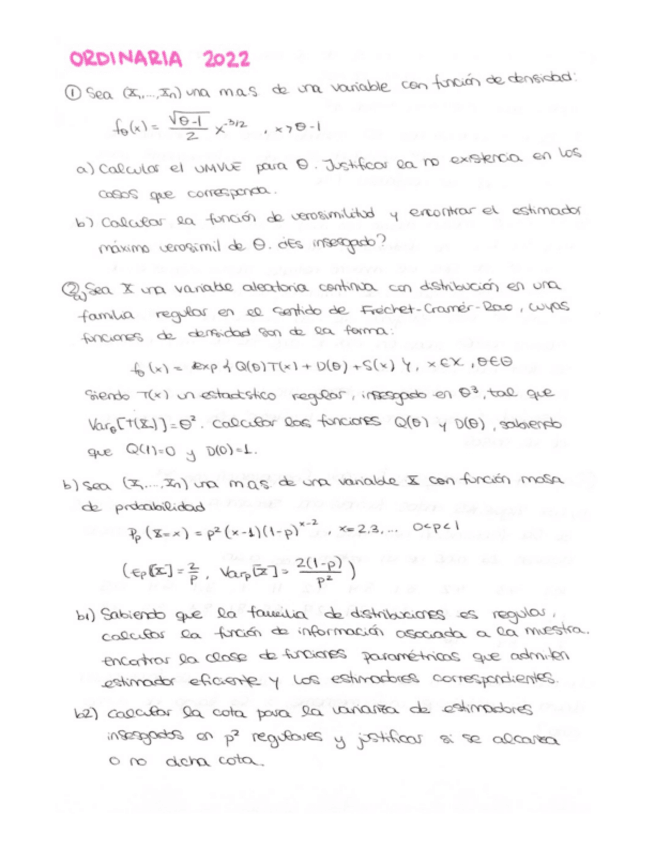 ORDINARIA 2022
① Sea (X₁,...,Xn) una mas de una variable con función de densidad:
fθ(x) = √θ-1/2 x^-3/2 , x > θ-1
a) Calcular el UMVUE para θ. Justificar la no existencia en los
casos que corresponda.
b) Calcular la función de verosimilitud y encontrar el estimador
máximo verosimil de θ. ¿Es insesgado?
② a) Sea X una variable aleatoria continua con distribución en una
familia regular en el sentido de Fréchet-Cramér-Rao, cuyas
funciones de densidad son de la forma:
fθ(x) = exp{Q(θ)T(x) + D(θ) + S(x)}, x∈X, θ∈Θ
Siendo T(x) un estadístico regular, insesgado en θ³, tal que
Varθ[T(X)] = θ². Calcular las funciones Q(θ) y D(θ), sabiendo
que Q(1)=0 y D(0)=1.
b) Sea (X₁,...,Xn) una mas de una variable X con función masa
de probabilidad
Pp(X=x) = p²(x-1)(1-p)^x-2 , x=2,3,... 0<p<1
(Ep[X] = 2/p , Varp[X] = 2(1-p)/p²)
b1) Sabiendo que la familia de distribuciones es regular,
calcular la función de información asociada a la muestra.
encontrar la clase de funciones paramétricas que admiten
estimador eficiente y los estimadores correspondientes.
b2) calcular la cota para la varianza de estimadores
insesgados en p² regulares y justificar si se alcanza
o no dicha cota.